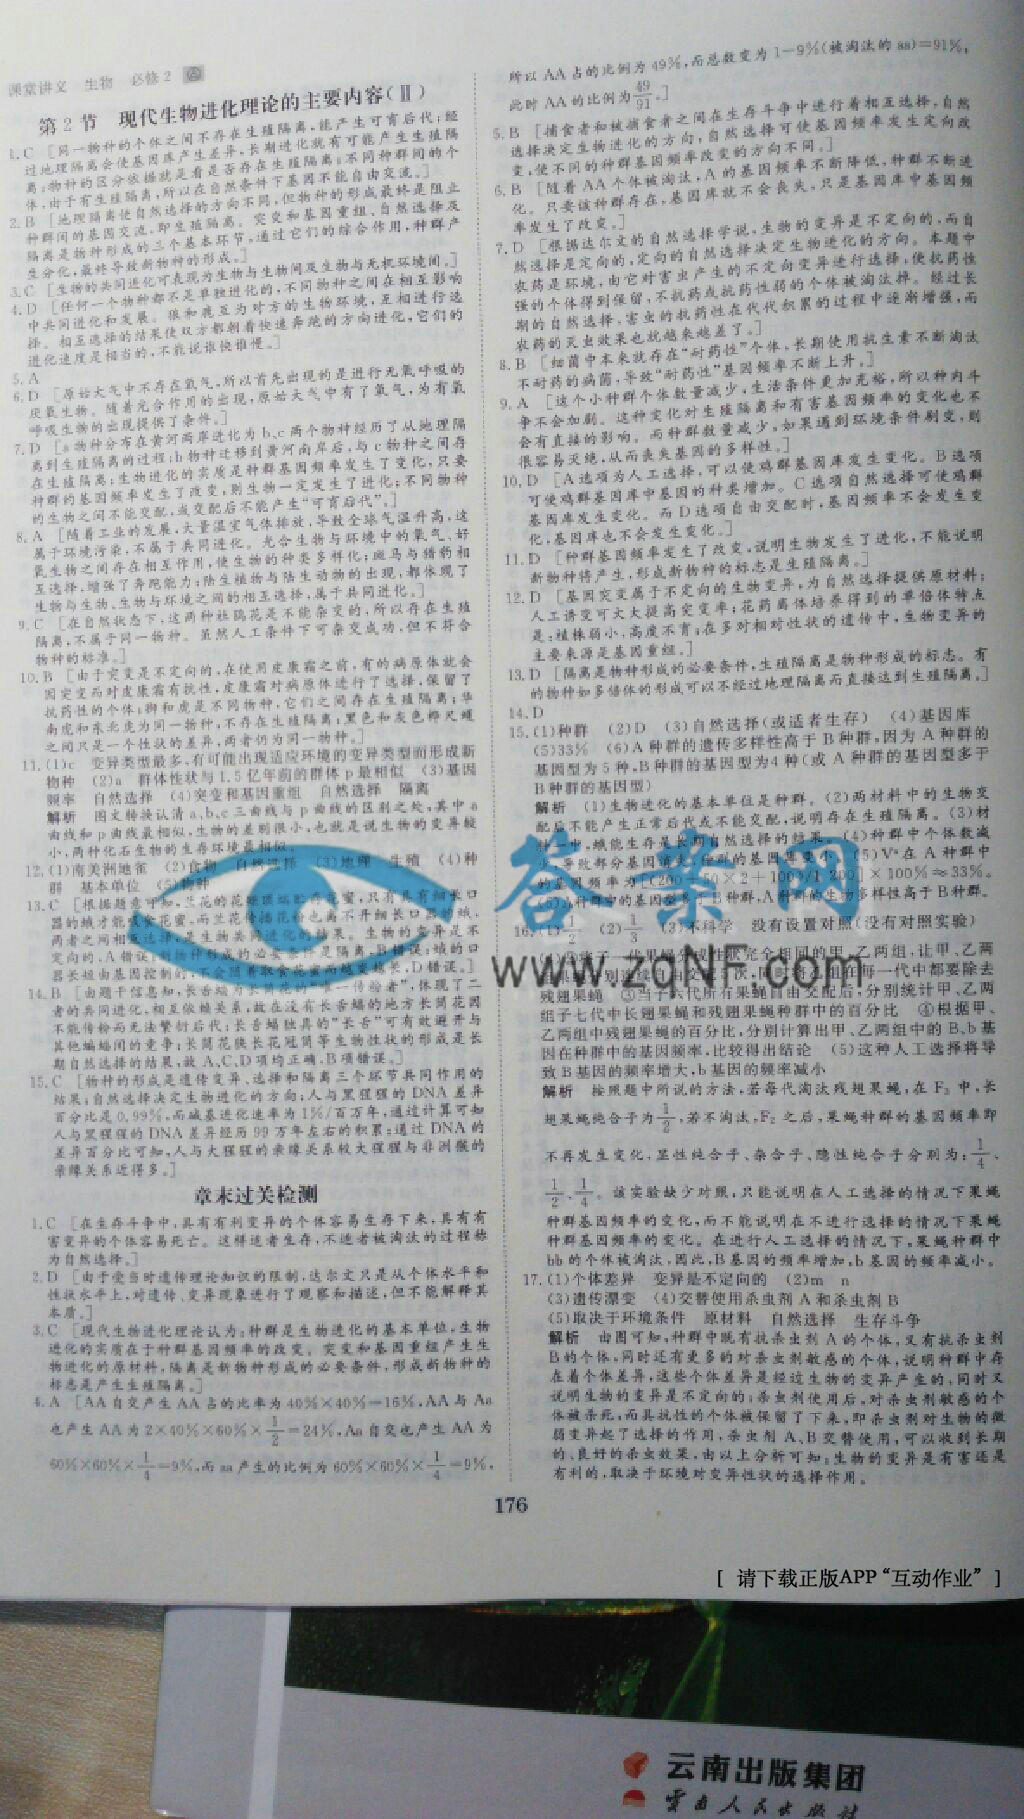 课堂讲义 生物 必修2
第2节 现代生物进化理论的主要内容(Ⅱ)
1.C [同一物种的个体之间不存在生殖隔离,能产生可育后代;经
过地理隔离会使基因库产生差异,长期进化就有可能产生生殖隔
离;物种的区分依据就是看是否存在生殖隔离;不同种群间的个
体,由于有生殖隔离,所以在自然条件下基因不能自由交流。]
2.B [地理隔离使自然选择的方向不同,但物种的形成最终是阻止
种群间的基因交流,即生殖隔离。突变和基因重组、自然选择及
隔离是物种形成的三个基本环节,通过它们的综合作用,种群产
生分化,最终导致新物种的形成。]
3.C [生物的共同进化可表现为生物与生物间及生物与无机环境间。]
4.D [任何一个物种都不是单独进化的,不同物种之间在相互影响
中共同进化和发展。狼和鹿互为对方的生物环境,互相进行选
择。相互选择的结果使双方都朝着快速奔跑的方向进化,它们的
进化速度是相当的,不能说谁快谁慢。]
5.A
6.D [原始大气中不存在氧气,所以首先出现的是进行无氧呼吸的
厌氧生物。随着光合作用的出现,原始大气中有了氧气,为有氧
呼吸生物的出现提供了条件。]
7.D [a物种分布在黄河两岸进化为b、c两个物种经历了从地理隔
离到生殖隔离的过程;b物种迁移到黄河南岸后,与c物种之间存
在生殖隔离;生物进化的实质是种群基因频率发生了变化,只要
种群的基因频率发生了改变,则生物一定发生了进化;不同物种
的生物之间不能交配,或交配后不能产生“可育后代”。]
8.A [随着工业的发展,大量温室气体排放,导致全球气温升高,这
属于环境污染,不属于共同进化。光合生物与环境中的氧气、好
氧生物之间存在相互作用,使生物的种类多样化;斑马与猎豹相
互选择,增强了奔跑能力;陆生植物与陆生动物的出现,都体现了
生物与生物、生物与环境之间的相互选择,属于共同进化。]
9.C [在自然状态下,这两种杜鹃花是不能杂交的,所以存在生殖
隔离,不属于同一物种。虽然人工条件下可杂交成功,但不符合
物种的标准。]
10.B [由于突变是不定向的,在使用皮康霜之前,有的病原体就会
因突变而对皮康霜有抗性,皮康霜对病原体进行了选择,保留了
抗药性的个体;狮和虎是不同物种,它们之间存在生殖隔离;华
南虎和东北虎为同一物种,不存在生殖隔离;黑色和灰色桦尺蠖
之间只是一个性状的差异,两者仍为同一物种。]
11.(1)c 变异类型最多,有可能出现适应环境的变异类型而形成新
物种 (2)a 群体性状与1.5亿年前的群体p最相似 (3)基因
频率 自然选择 (4)突变和基因重组 自然选择 隔离
解析 图文转换认清a、b、c三曲线与p曲线的区别之处,其中a
曲线和p曲线最相似,生物的差别很小,也就是说生物的变异较
小,两种化石生物的生存环境最相似。
12.(1)南美洲地雀 (2)食物 自然选择 (3)地理 生殖 (4)种
群 基本单位 (5)物种
13.C [根据题意可知,兰花的花矩顶端贮存花蜜,只有具有细长口
器的蛾才能吸食花蜜,而兰花传播花粉也离不开细长口器的蛾,
两者之间相互选择,是生物共同进化的结果。生物的变异是不
定向的,A错误;新物种形成的必要条件是隔离,B错误;蛾的口
器长短由基因控制的,不会随着取食花蜜而越变越长,D错误。]
14.B [由题干信息知,长舌蝠为长筒花的“唯一传粉者”,体现了二
者的共同进化,相互依赖关系,故在没有长舌蝠的地方长筒花因
不能传粉而无法繁衍后代;长舌蝠独具的“长舌”可有效避开与
其他蝙蝠间的竞争;长筒花狭长花冠筒等生物性状的形成是长
期自然选择的结果,故A、C、D项均正确,B项错误。]
15.C [物种的形成是遗传变异、选择和隔离三个环节共同作用的
结果;自然选择决定生物进化的方向;人与黑猩猩的DNA差异
百分比是0.99%,而碱基进化速率为1%/百万年,通过计算可知
人与黑猩猩的DNA差异经历99万年左右的积累;通过DNA的
差异百分比可知,人与大猩猩的亲缘关系较大猩猩与非洲猴的
亲缘关系近得多。]
章末过关检测
1.C [在生存斗争中,具有有利变异的个体容易生存下来,具有有
害变异的个体容易死亡。这样适者生存,不适者被淘汰的过程称
为自然选择。]
2.D [由于受当时遗传理论知识的限制,达尔文只是从个体水平和
性状水平上,对遗传、变异现象进行了观察和描述,但不能解释其
本质。]
3.C [现代生物进化理论认为:种群是生物进化的基本单位,生物
进化的实质在于种群基因频率的改变。突变和基因重组产生生
物进化的原材料,隔离是新物种形成的必要条件,形成新物种的
标志是产生生殖隔离。]
4.A [AA自交产生AA占的比率为40%×40%=16%,AA与Aa
也产生AA为2×40%×60%×1/2=24%,Aa自交也产生AA为
60%×60%×1/4=9%,而aa产生的比例为60%×60%×1/4=9%,
所以AA占的比例为49%,而总数变为1-9%(被淘汰的aa)=91%,
此时AA的比例为49/91。]
5.B [捕食者和被捕食者之间在生存斗争中进行着相互选择,自然
选择决定生物进化的方向,自然选择可使基因频率发生定向改
变,使不同的种群基因频率改变的方向不同。]
6.B [随着AA个体被淘汰,A的基因频率不断降低,种群不断进
化。只要该种群存在,基因库就不会丧失,只是基因库中基因频
率发生了改变。]
7.D [根据达尔文的自然选择学说,生物的变异是不定向的,而自
然选择是定向的,定向的自然选择决定生物进化的方向。本题中
农药是环境,由它对害虫产生的不定向变异进行选择,使抗药性
强的个体得到保留,不抗药或抗药性弱的个体被淘汰掉。经过长
期的自然选择,害虫的抗药性在代代积累的过程中逐渐增强,而
农药的灭虫效果也就越来越差了。]
8.B [细菌中本来就存在“耐药性”个体,长期使用抗生素不断淘汰
不耐药的病菌,导致“耐药性”基因频率不断上升。]
9.A [这个小种群个体数量减少,生活条件更加充裕,所以种内斗
争不会加剧。这种变化对生殖隔离和有害基因频率的变化也不
会有直接的影响。而种群数量减少,如果遇到环境条件剧变,则
很容易灭绝,从而丧失基因的多样性。]
10.D [A选项为人工选择,可以使鸡群基因库发生变化。B选项
可使鸡群基因库中基因的种类增加。C选项自然选择可使鸡群
基因库发生变化。而D选项自由交配时,基因频率不会发生变
化,基因库也不会发生变化。]
11.D [种群基因频率发生了改变,说明生物发生了进化,不能说明
新物种将产生,形成新物种的标志是生殖隔离。]
12.D [基因突变属于不定向的生物变异,为自然选择提供原材料;
人工诱变可大大提高突变率;花药离体培养得到的单倍体特点
是:植株弱小,高度不育;在多对相对性状的遗传中,生物变异的
主要来源是基因重组。]
13.D [隔离是物种形成的必要条件,生殖隔离是物种形成的标志。有
的物种如多倍体的形成可以不经过地理隔离而直接达到生殖隔离。]
14.D
15.(1)种群 (2)D (3)自然选择(或适者生存) (4)基因库
(5)33% (6)A种群的遗传多样性高于B种群,因为A种群的
基因型为5种,B种群的基因型为4种(或A种群的基因型多于
B种群的基因型)
解析 (1)生物进化的基本单位是种群。(2)两材料中的生物交
配后不能产生正常后代或不能交配,说明存在生殖隔离。(3)材
料一中,蛾能生存是长期自然选择的结果。(4)种群中个体数减
小,导致部分基因消失,种群的基因库变小。(5)Vᵃ在A种群中
的基因频率为[(200+50×2+100)/1 200]×100%≈33%。
(6)A种群中的基因型多于B种群,A种群的生物多样性高于B种群。
16.(1)1/2 (2)1/3 (3)不科学 没有设置对照(没有对照实验)
(4)②将子一代果蝇分成性状完全相同的甲、乙两组,让甲、乙两
组果蝇分别连续自由交配5代,同时将乙组在每一代中都要除去
残翅果蝇 ③当子六代所有果蝇自由交配后,分别统计甲、乙两
组子七代中长翅果蝇和残翅果蝇种群中的百分比 ④根据甲、
乙两组中残翅果蝇的百分比,分别计算出甲、乙两组中的B、b基
因在种群中的基因频率,比较得出结论 (5)这种人工选择将导
致B基因的频率增大,b基因的频率减小
解析 按照题中所说的方法,若每代淘汰残翅果蝇,在F₃中,长
翅果蝇纯合子为1/2,若不淘汰,F₂之后,果蝇种群的基因频率即
不再发生变化,显性纯合子、杂合子、隐性纯合子分别为:1/4、
1/2、1/4。该实验缺少对照,只能说明在人工选择的情况下果蝇
种群基因频率的变化,而不能说明在不进行选择的情况下果蝇
种群基因频率的变化。在进行人工选择的情况下,果蝇种群中
bb的个体被淘汰,因此,B基因的频率增加,b基因的频率减小。
17.(1)个体差异 变异是不定向的 (2)m n
(3)遗传漂变 (4)交替使用杀虫剂A和杀虫剂B
(5)取决于环境条件 原材料 自然选择 生存斗争
解析 由图可知,种群中既有抗杀虫剂A的个体,又有抗杀虫剂
B的个体,同时还有更多的对杀虫剂敏感的个体,说明种群中存
在着个体差异,这些个体差异是经过生物的变异产生的,同时又
说明生物的变异是不定向的;杀虫剂使用后,对杀虫剂敏感的个
体被杀死;而具抗性的个体被保留了下来,即杀虫剂对生物的微
弱变异起了选择的作用,杀虫剂A、B交替使用,可以收到长期
的、良好的杀虫效果,由以上分析可知:生物的变异是有害还是
有利的,取决于环境对变异性状的选择作用。
176
答案网
www.zqNF.com
[ 请下载正版APP“互动作业” ]
云南出版集团
云南人民出版社